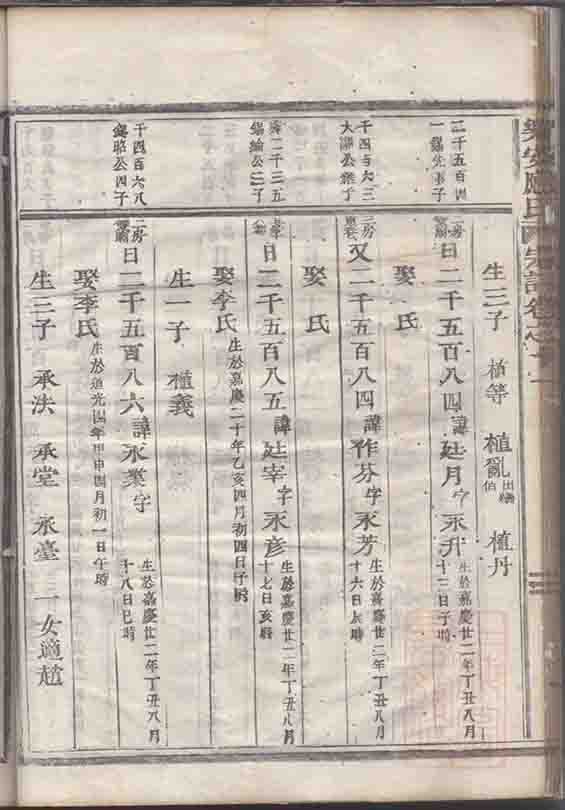 樂安應氏
生三子 植等 植亂 出繼 植丹
二千五百四
曰二千五百八四 諱廷月 字永升 生於嘉慶廿二年丁丑八月十三日子時
娶 氏
千四百六三
又二千五百八四 諱作芬 字永芳 生於嘉慶廿二年丁丑八月十六日辰時
娶 氏
曰二千五百八五 諱廷宰 字永彦 生於嘉慶廿二年丁丑八月十七日亥時
娶李氏 生於嘉慶二十年乙亥四月初四日子時
生一子 植義
千四百六八
公四子
二房
曰二千五百八六 諱永業 字 生於嘉慶廿二年丁丑八月十八日巳時
娶李氏 生於道光四年甲申四月初一日午時
生三子 承法 承堂 承臺 一女適趙